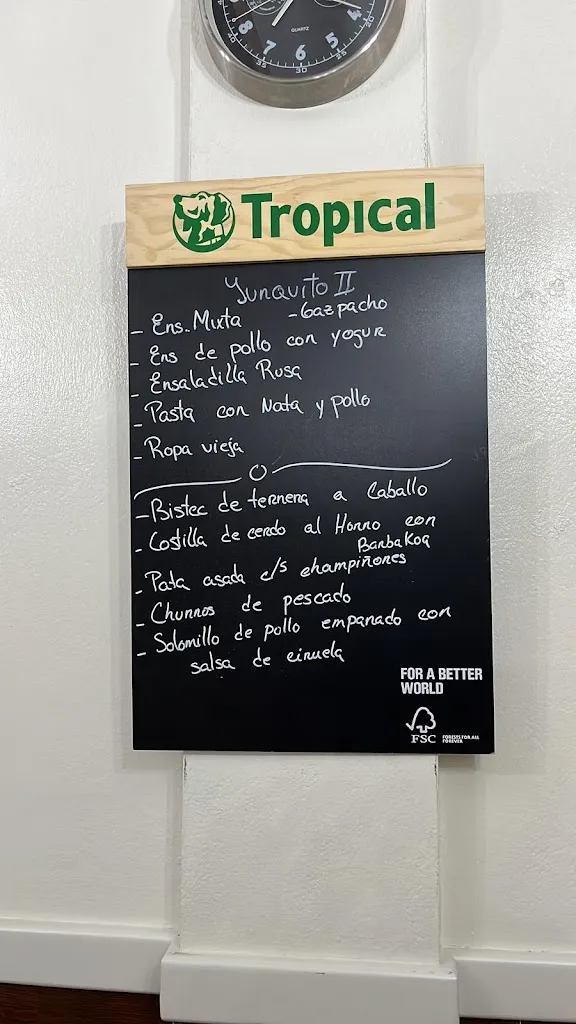 8 7 6 5 4
40 35 30 25 20
QUARTZ
Tropical
Yunquito II
- Ens. Mixta - Gazpacho
- Ens de pollo con yogur
- Ensaladilla Rusa
- Pasta con Nata y pollo
- Ropa vieja
- Bistec de ternera a Caballo
- Costilla de cerdo al Horno con
Barbakoa
- Pata asada c/s champiñones
- Churros de pescado
- Solomillo de pollo empanado con
salsa de ciruela
FOR A BETTER
WORLD
FSC
FORESTS FOR ALL
FOREVER